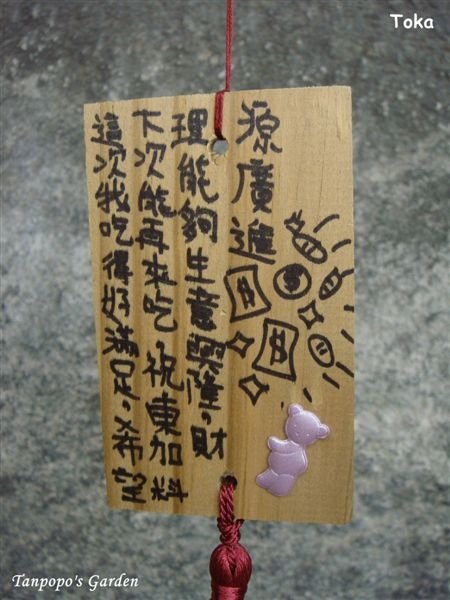 Toka
這次我吃得好滿足，希望
下次能再來吃，祝東加料
理能夠生意興隆，財
源廣進
Tanpopo's Garden